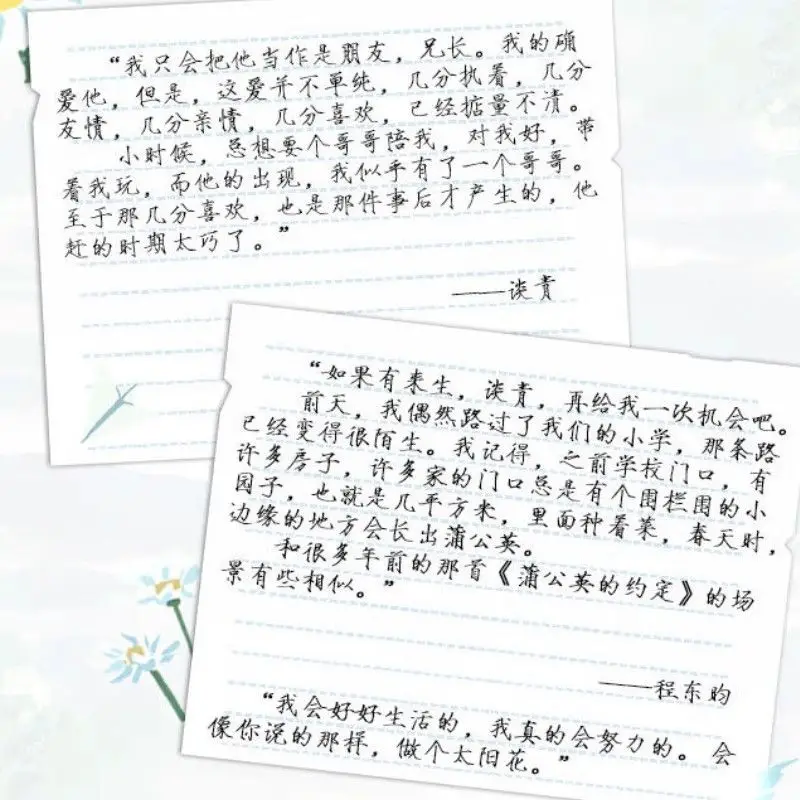 “我只会把他当作是朋友，兄长。我的确
爱他，但是，这爱并不单纯，几分执着，几分
友情，几分亲情，几分喜欢，已经掂量不清。
小时候，总想要个哥哥陪我，对我好，带
着我玩，而他的出现，我似乎有了一个哥哥。
至于那几分喜欢，也是那件事后才产生的，他
赶的时期太巧了。”
——谈青
“如果有来生，谈青，再给我一次机会吧。
前天，我偶然路过了我们的小学，那条路
已经变得很陌生。我记得，之前学校门口，有
许多房子，许多家的门口总是有个围栏围的小
园子，也就是几平方米，里面种着菜，春天时，
边缘的地方会长出蒲公英。
和很多年前的那首《蒲公英的约定》的场
景有些相似。”
——程东昀
“我会好好生活的，我真的会努力的。会
像你说的那样，做个太阳花。”